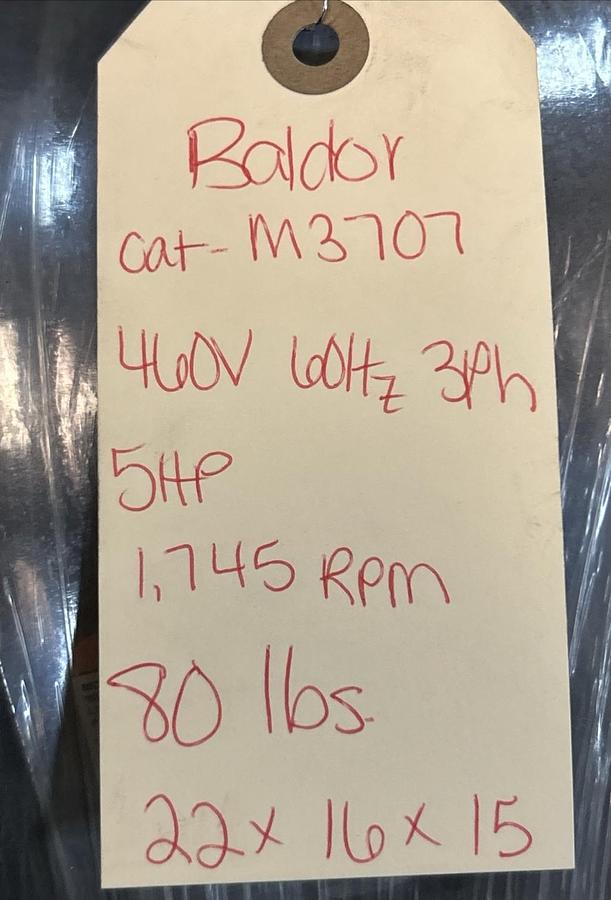 Baldor
cat- M3707
460V 60Hz 3Ph
5HP
1,745 RPM
80 lbs.
22 x 16 x 15